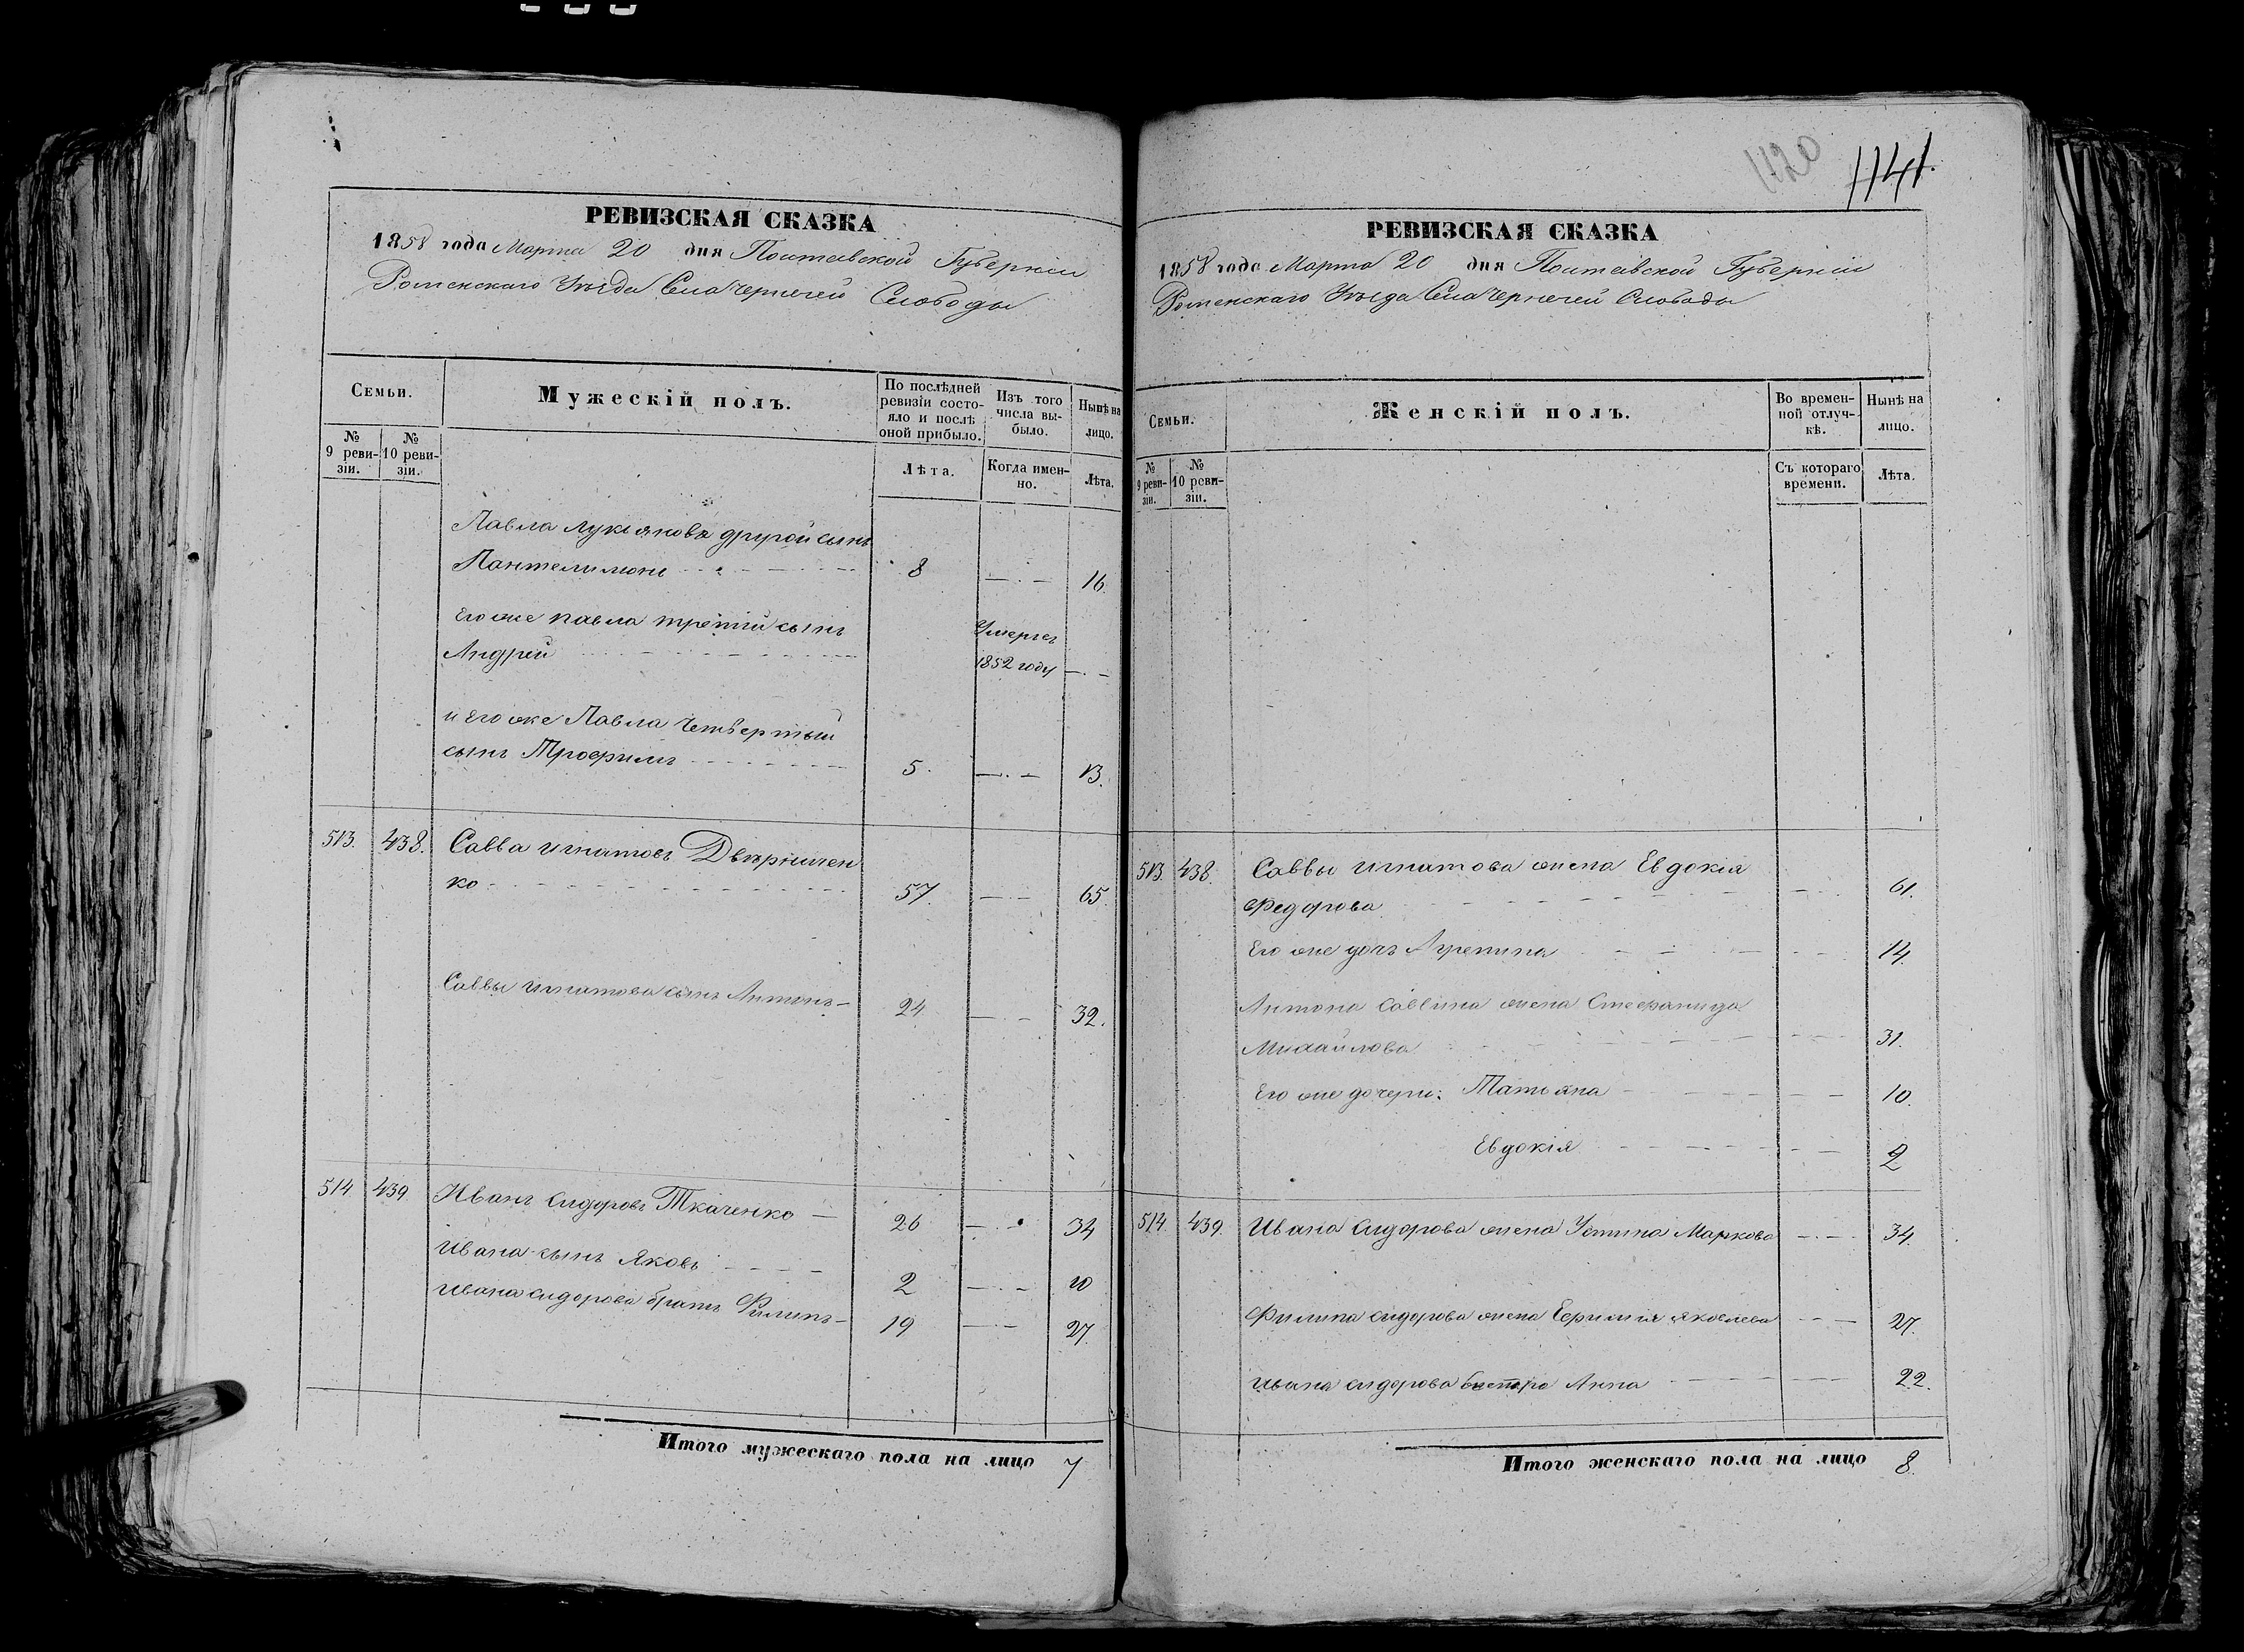 1120
1141.
РЕВИЗСКАЯ СКАЗКА
1858 года Марта 20 дня Полтавской Губерніи
Роменскаго Уѣзда Села Чернечей Слободы
Семьи.
Мужескій полъ.
По послѣдней ревизіи состояло и послѣ оной прибыло.
Изъ того числа выбыло.
Нынѣ на лицо.
№ 9 ревизіи.
№ 10 ревизіи.
Лѣта.
Когда именно.
Лѣта.
Павла Лукьянова другой сынъ
Пантелимонъ 8 16.
Его же Павла третій сынъ Умеръ
Андрей 1852 году
и Его же Павла четвертый
сынъ Трофимъ 5. 13.
513. 438. Савва Игнатовъ
ко 57. 65.
Саввы Игнатова сынъ Антонъ 24. 32.
514. 439. Иванъ Сидоровъ Ткаченко 26 34
Ивана сынъ Яковъ 2 10
Ивана Сидорова братъ Филипъ 19 27.
Итого мужескаго пола на лицо 7
РЕВИЗСКАЯ СКАЗКА
1858 года Марта 20 дня Полтавской Губерніи
Роменскаго Уѣзда Села Чернечей Слободы
Семьи.
Женскій полъ.
Во временной отлучкѣ.
Нынѣ на лицо.
№ 9 ревизіи.
№ 10 ревизіи.
Съ котораго времени.
Лѣта.
513. 438. Саввы Игнатова жена Евдокія
Федорова 61.
Его же дочь Агрепина 14.
Антона Саввина жена Стефанида
Михайлова 31.
Его же дочери: Татьяна 10.
Евдокія 2
514. 439. Ивана Сидорова жена Устина Маркова 34.
Филипа Сидорова жена Ефимия Яковлева 27.
Ивана Сидорова сестра Анна 22.
Итого женскаго пола на лицо 8.